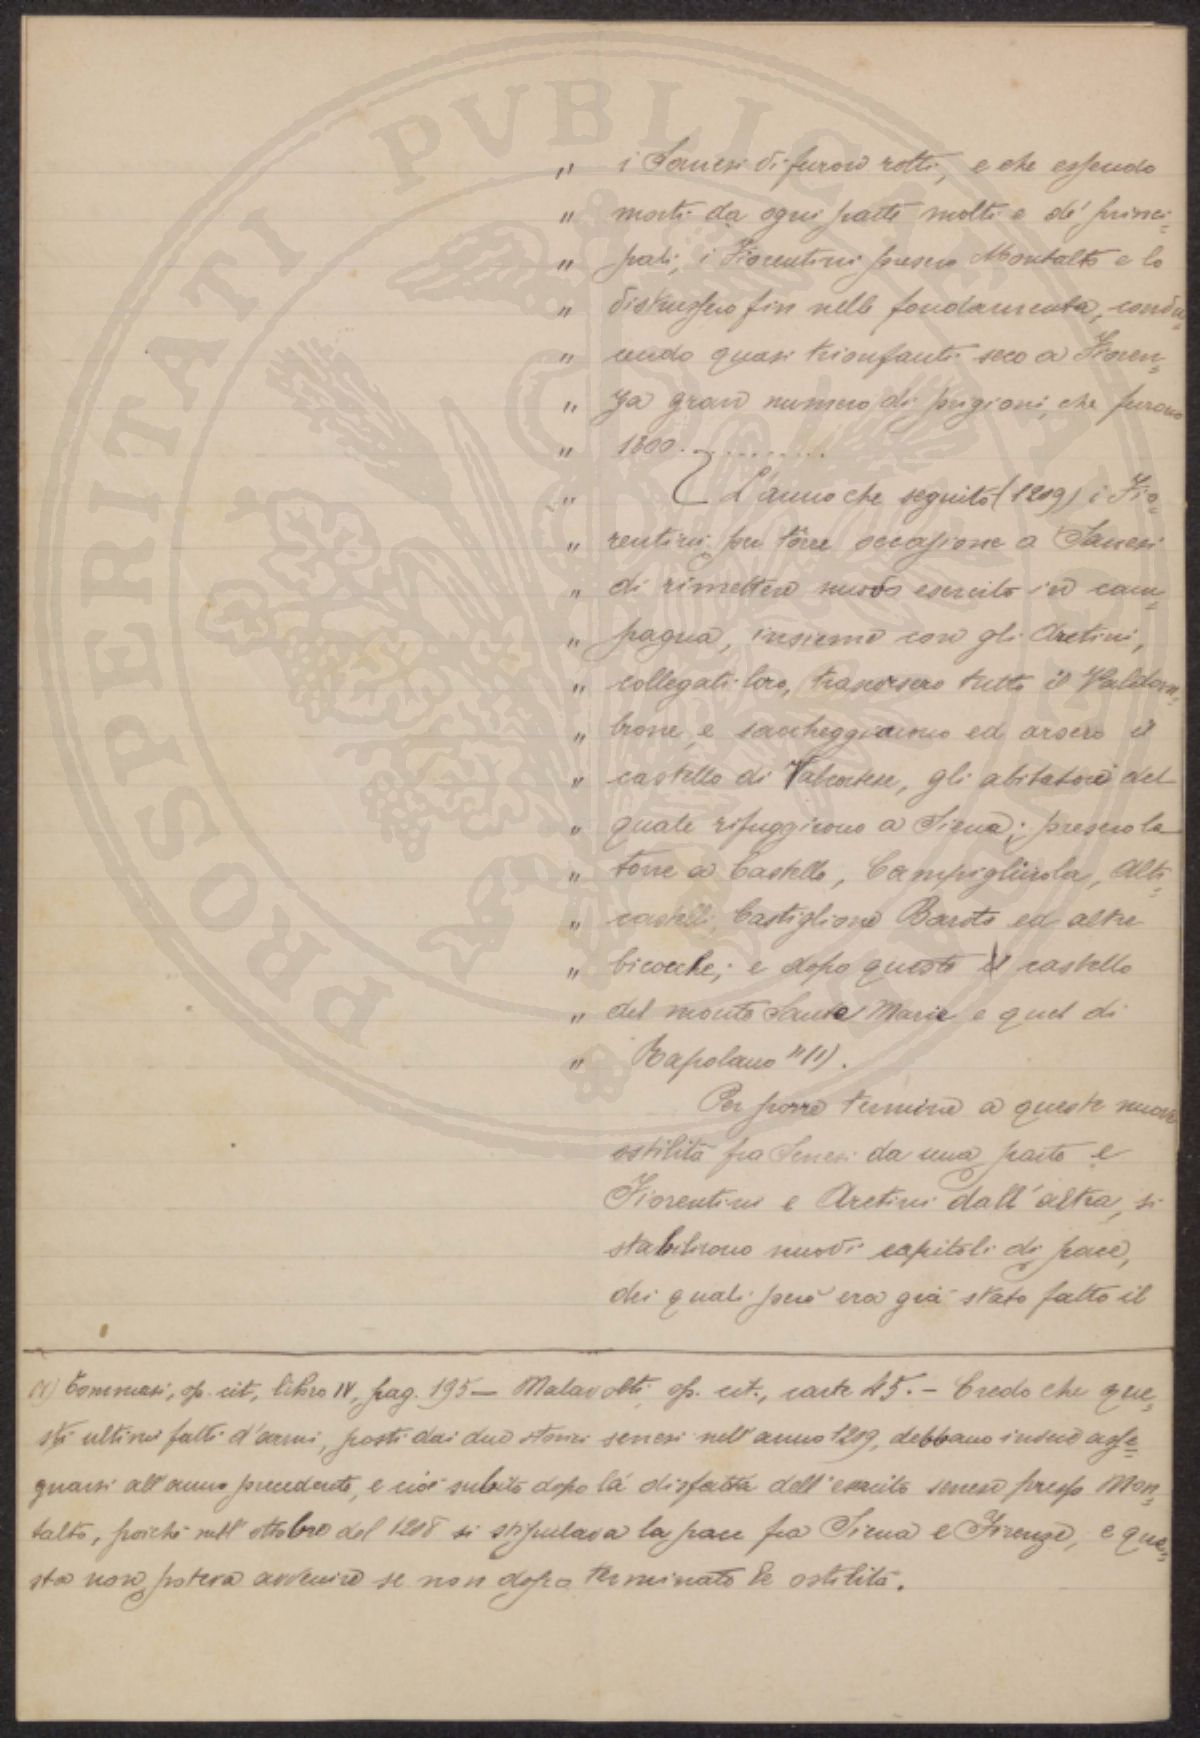 " i Sanesi vi furon rotti, e che essendo
" morti da ogni parte molti e de' princi=
" pali, i Fiorentini presero Montalto e lo
" distrussero fin nelle fondamenta, condu=
" cendo quasi trionfanti seco a Fioren=
" za gran numero di prigioni, che furono
" 1300............
" L'anno che seguitò (1209) i Fio=
" rentini, per tôrre occasione a Sanesi
" di rimettere nuovo esercito in cam=
" pagna, insieme con gli Aretini,
" collegati loro, trascorsero tutto il Valdom=
" brone, e saccheggiarono ed arsero il
" castello di Valcortese, gli abitatori del
" quale rifuggirono a Siena; presero la
" torre a Castello, Campigliola, Alti=
" castelli, Castiglione Barote ed altre
" bicocche; e dopo questo il castello
" del monte Sante Marie e quel di
" Rapolano" (1).
Per porre termine a queste nuove
ostilità fra Senesi da una parte e
Fiorentini e Aretini dall'altra, si
stabilirono nuovi capitoli di pace,
dei quali però era già stato fatto il
(1) Tommasi, op. cit., libro IV, pag. 195 — Malavolti, op. cit., carte 45. — Credo che que=
sti ultimi fatti d'armi, posti dai due storici senesi nell'anno 1209, debbano invece asse=
gnarsi all'anno precedente, e cioè subito dopo la disfatta dell'esercito senese presso Mon=
talto, poichè nell'ottobre del 1208 si stipulava la pace fra Siena e Firenze, e que=
sta non poteva avvenire se non dopo terminate le ostilità.
PROSPERITATI PVBLICAE